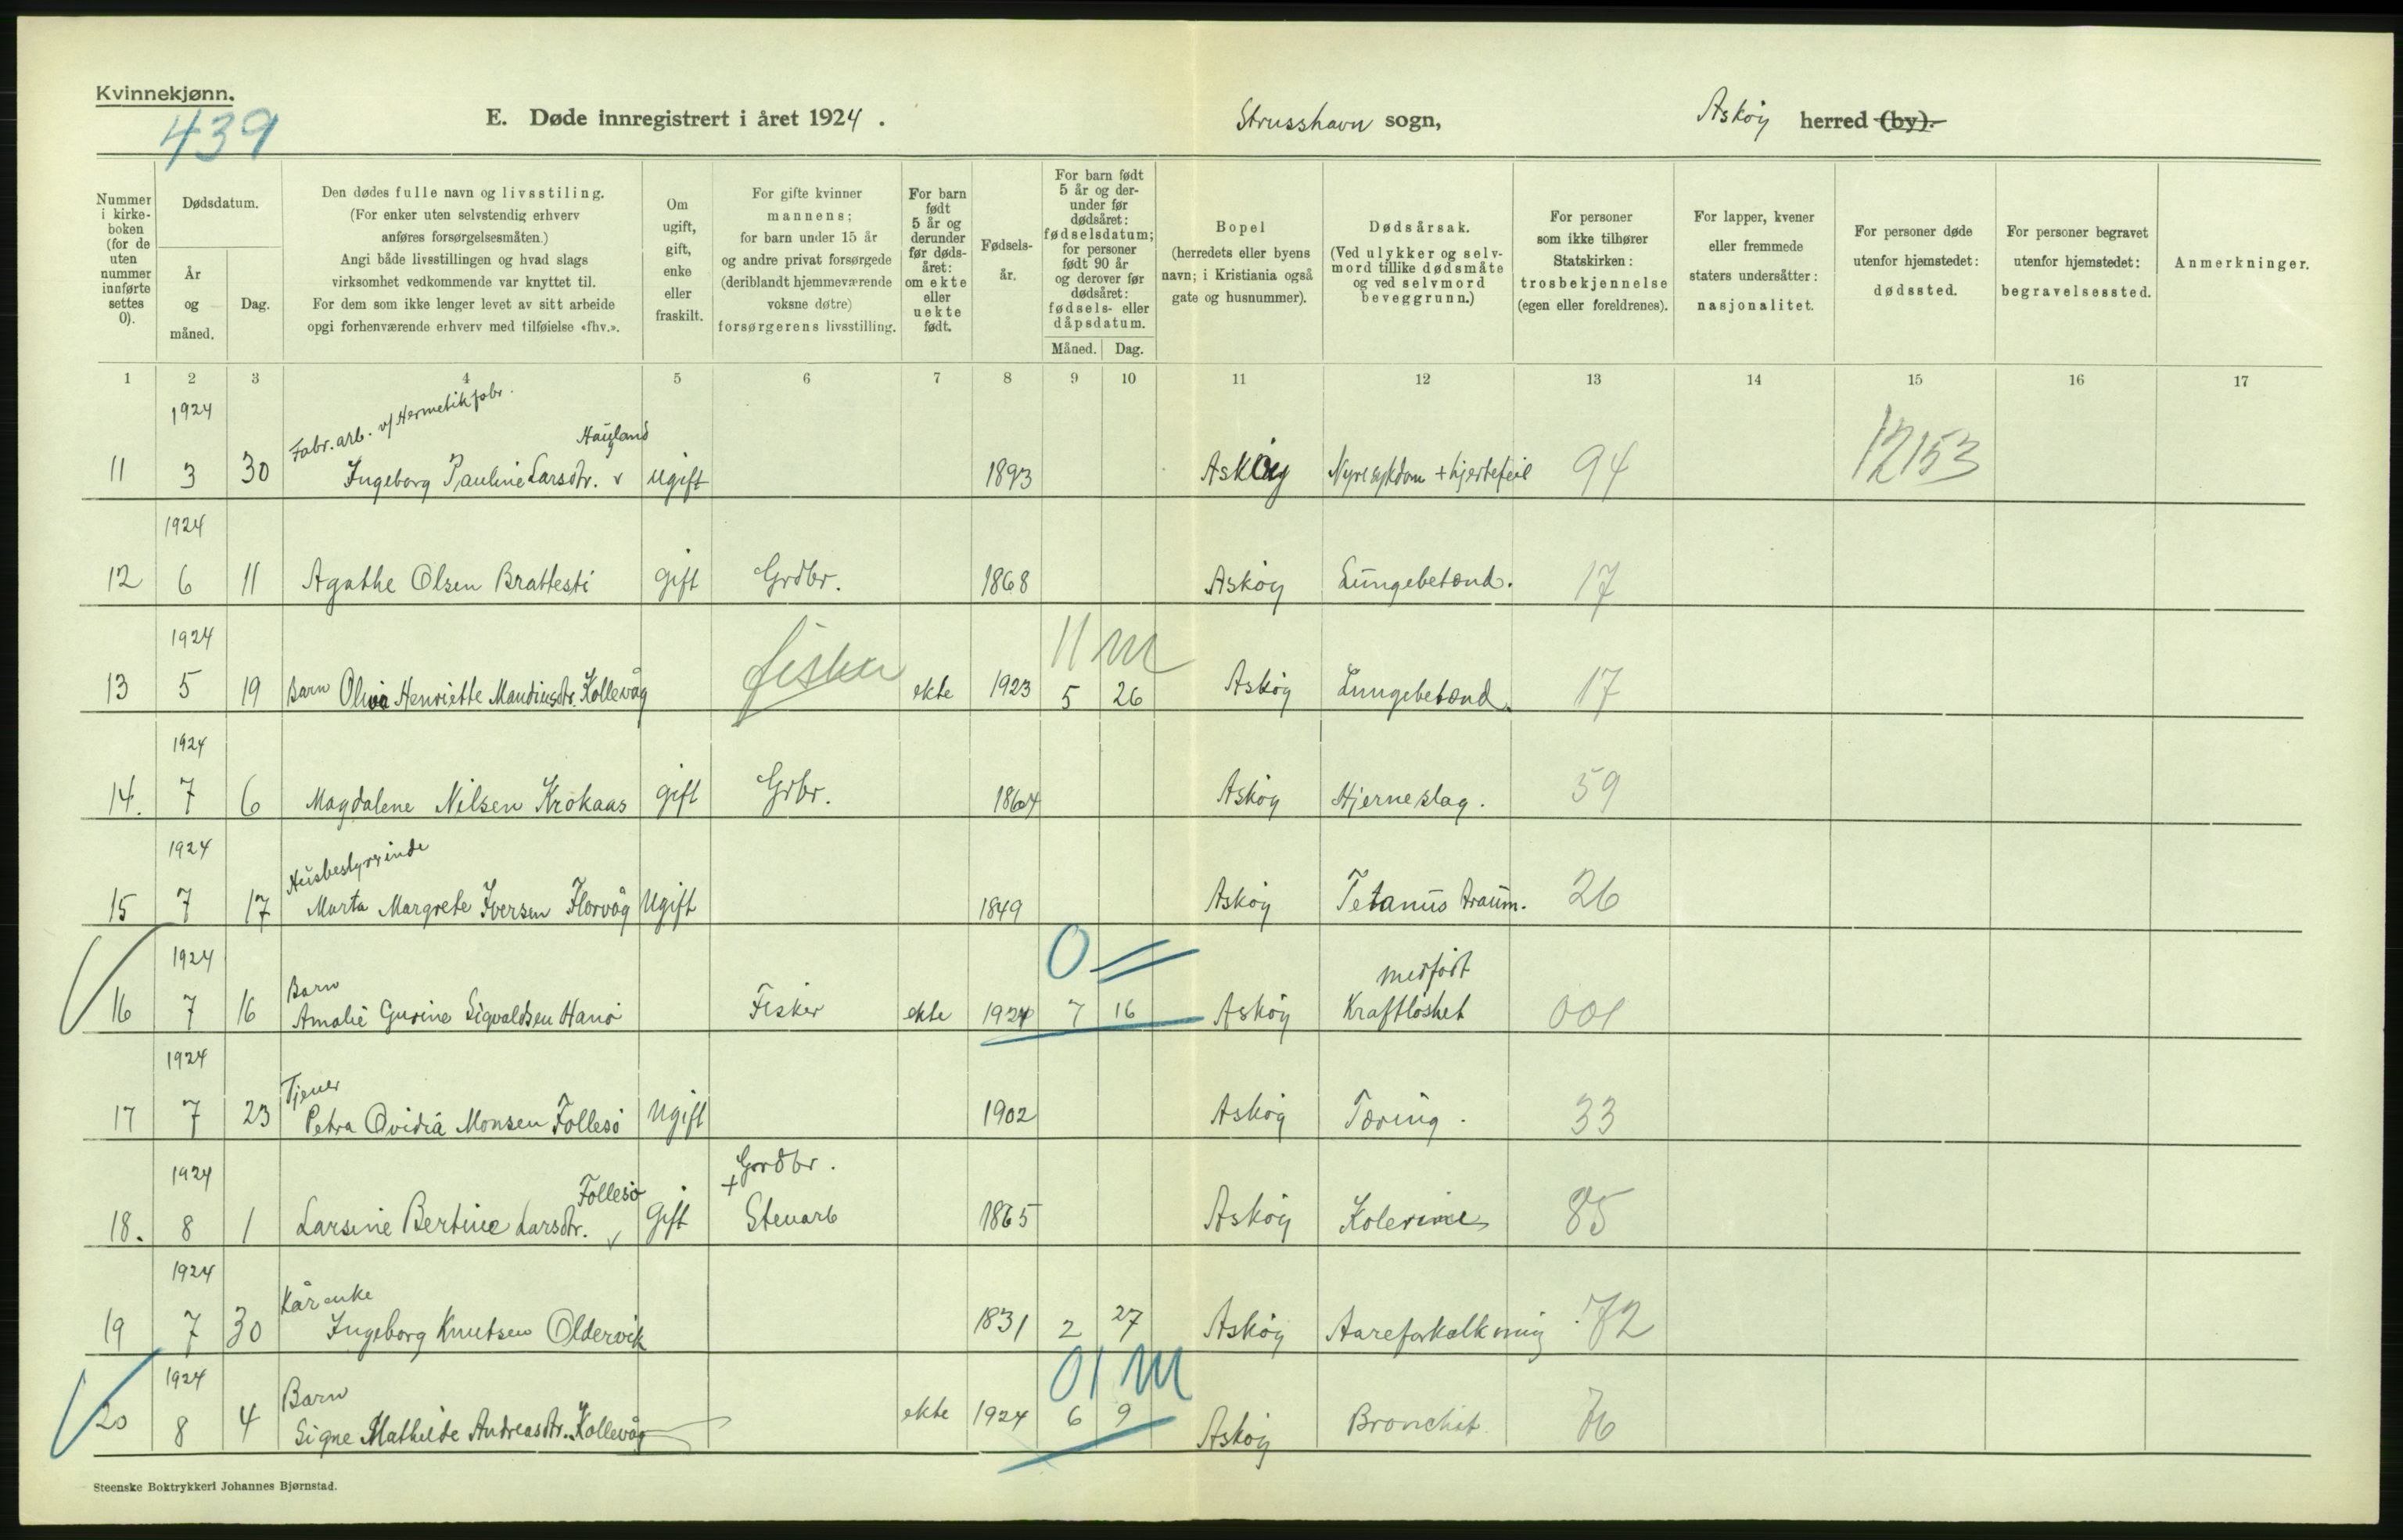 Kvinnekjønn.
439
E. Døde innregistrert i året 1924.
Strusshavn sogn,
Askøy herred (by).
Nummer i kirke-boken (for de uten nummer innførte settes 0).
Dødsdatum.
År og måned.
Dag.
Den dødes fulle navn og livsstiling.
(For enker uten selvstendig erhverv
anføres forsørgelsesmåten.)
Angi både livsstillingen og hvad slags
virksomhet vedkommende var knyttet til.
For dem som ikke lenger levet av sitt arbeide
opgi forhenværende erhverv med tilføielse «fhv.».
Om ugift, gift, enke eller fraskilt.
For gifte kvinner
mannens;
for barn under 15 år
og andre privat forsørgede
(deriblandt hjemmeværende
voksne døtre)
forsørgerens livsstilling.
For barn født 5 år og derunder før døds-året: om ekte eller uekte født.
Fødsels-år.
For barn født 5 år og der-under før dødsåret: fødselsdatum; for personer født 90 år og derover før dødsåret: fødsels- eller dåpsdatum.
Måned. Dag.
Bopel
(herredets eller byens
navn; i Kristiania også
gate og husnummer).
Dødsårsak.
(Ved ulykker og selv-
mord tillike dødsmåte
og ved selvmord
beveggrunn.)
For personer
som ikke tilhører
Statskirken:
trosbekjennelse
(egen eller foreldrenes).
For lapper, kvener
eller fremmede
staters undersåtter:
nasjonalitet.
For personer døde
utenfor hjemstedet:
dødssted.
For personer begravet
utenfor hjemstedet:
begravelsessted.
Anmerkninger.
1 2 3 4 5 6 7 8 9 10 11 12 13 14 15 16 17
1924 Fabr. arb. v/ Hermetikfabr. Haugland
11 3 30 Ingeborg Pauline Larsdtr. v ugift 1893 Askøy Nyresykdom + hjertefeil 94 12153
1924
12 6 11 Agathe Olsen Brattesti gift Grdbr. 1868 Askøy Lungebetænd. 17
1924 11 M
13 5 19 Barn Olivia Henriette Mandiusdtr. Kollevåg fisker ekte 1923 5 26 Askøy Lungebetænd. 17
1924
14. 7 6 Magdalene Nilsen Krokaas gift Grbr. 1864 Askøy Hjerneslag. 59
1924 Husbestyrrinde
15 7 17 Marta Margrete Iversen Florvåg Ugift 1849 Askøy Tetanus traum. 26
1924 Barn 0 medfødt
16 7 16 Amalie Gurine Sigvaldsen Hanø Fisker ekte 1924 7 16 Askøy Kraftløshet 001
1924 Tjener
17 7 23 Petra Ovidia Monsen Follesø Ugift 1902 Askøy Tæring. 33
1924 Follesø + Gordbr.
18. 8 1 Larsine Bertine Larsdtr. v Gift Stenarb 1865 Askøy Kolerine 85
1924 Kårenke
19 7 30 Ingeborg Knutsen Oldervik 1831 2 27 Askøy Aareforkalkning 72
1924 Barn 01 M
20 8 4 Signe Mathilde Andreasdtr. Kollevåg ekte 1924 6 9 Askøy Bronchit. 76
Steenske Boktrykkeri Johannes Bjørnstad.